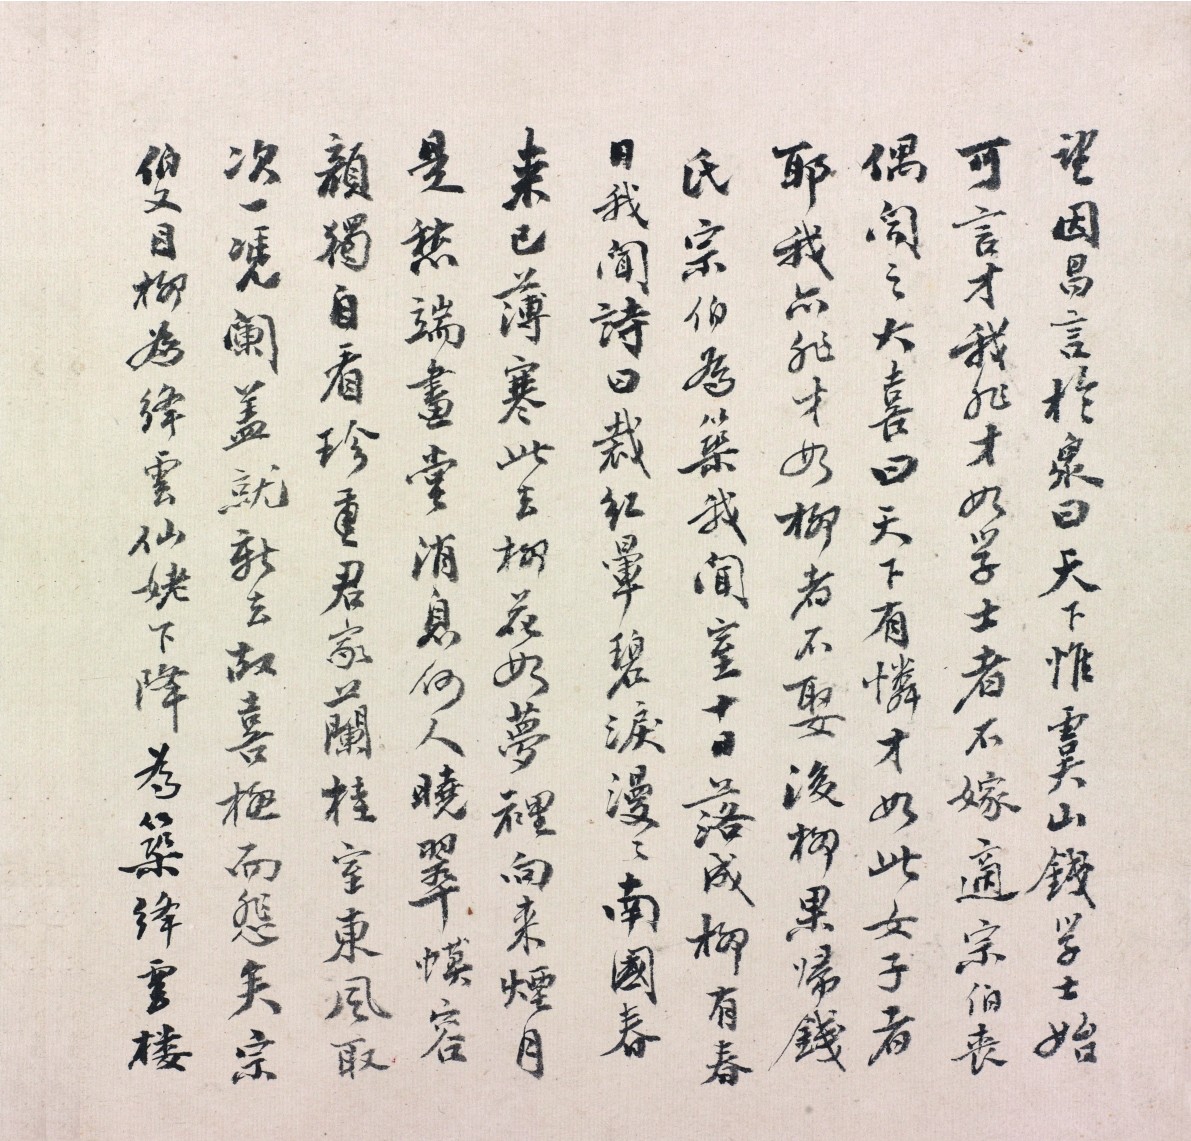 望因昌言於衆曰天下惟虞山錢学士始
可言才我非才如学士者不嫁適宗伯喪
偶闻之大喜曰天下有憐才如此女子者
耶我亦非才如柳者不娶後柳果帰錢
氏宗伯為築我聞室十日落成柳有春
日我聞詩曰裁紅暈碧淚漫〻南國春
来已薄寒此去柳花如夢裡向来煙月
是愁端畫堂消息何人曉翠幙容
顔獨自看珍重君家蘭桂室東風取
次一凴闌盖就新去故喜極而怨矣宗
伯又目柳為絳雲仙姥下降為築絳雲楼